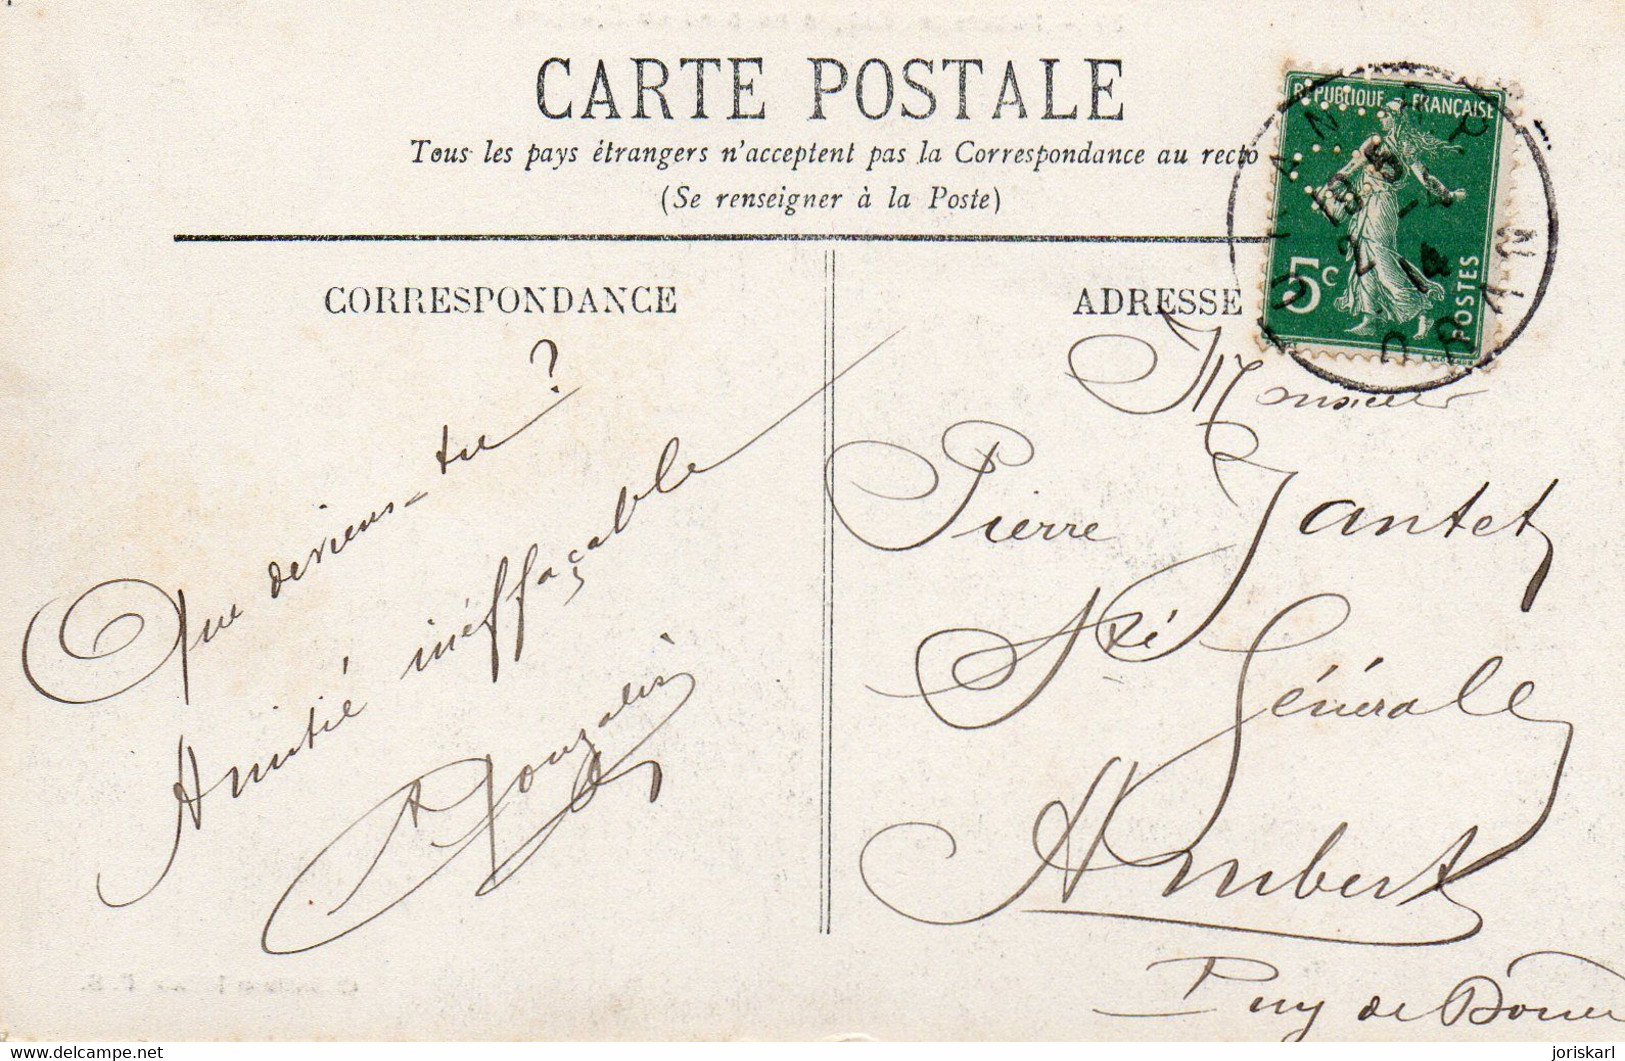 CARTE POSTALE
Tous les pays étrangers n'acceptent pas la Correspondance au recto
(Se renseigner à la Poste)
CORRESPONDANCE
Que deviens-tu ?
Amitié ineffaçable
ADRESSE
REPUBLIQUE FRANÇAISE
5c
POSTES
19 5
2 -4
14
Monsieur
Pierre Jantet
Sté
Générale
Ambert
Puy de Dome
www.delcampe.net
joriskarl